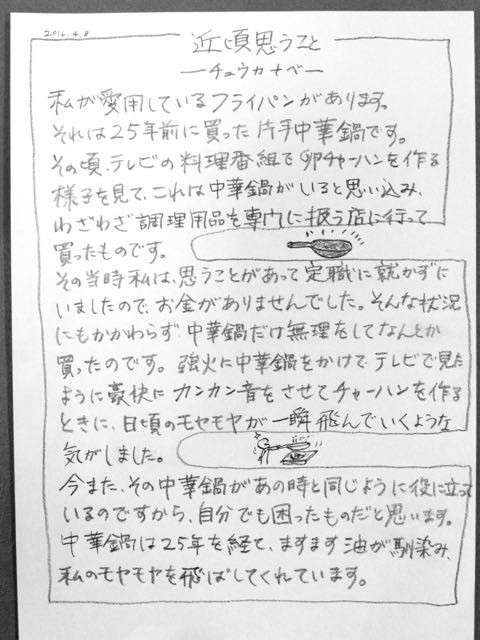 2016.4.8
近頃思うこと
―チュウカナベ―
私が愛用しているフライパンがあります。
それは25年前に買った片手中華鍋です。
その頃、テレビの料理番組で卵チャーハンを作る
様子を見て、これは中華鍋がいると思い込み、
わざわざ調理用品を専門に扱う店に行って
買ったものです。
その当時私は、思うことがあって定職に就かずに
いましたので、お金がありませんでした。そんな状況
にもかかわらず中華鍋だけ無理をしてなんとか
買ったのです。強火に中華鍋をかけて、テレビで見た
ように豪快にカンカン音をさせてチャーハンを作る
ときに、日頃のモヤモヤが一瞬飛んでいくような
気がしました。
今また、その中華鍋があの時と同じように役に立って
いるのですから、自分でも困ったものだと思います。
中華鍋は25年を経て、ますます油が馴染み、
私のモヤモヤを飛ばしてくれています。